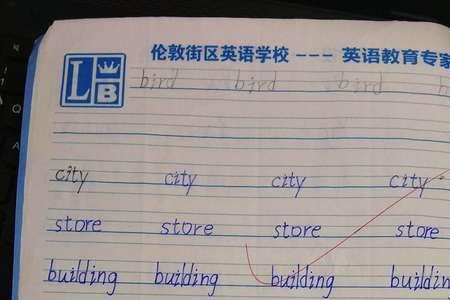 伦敦街区英语学校 --- 英语教育专家
L B
bird bird bird
city city city city
store store store store
building building building buildin